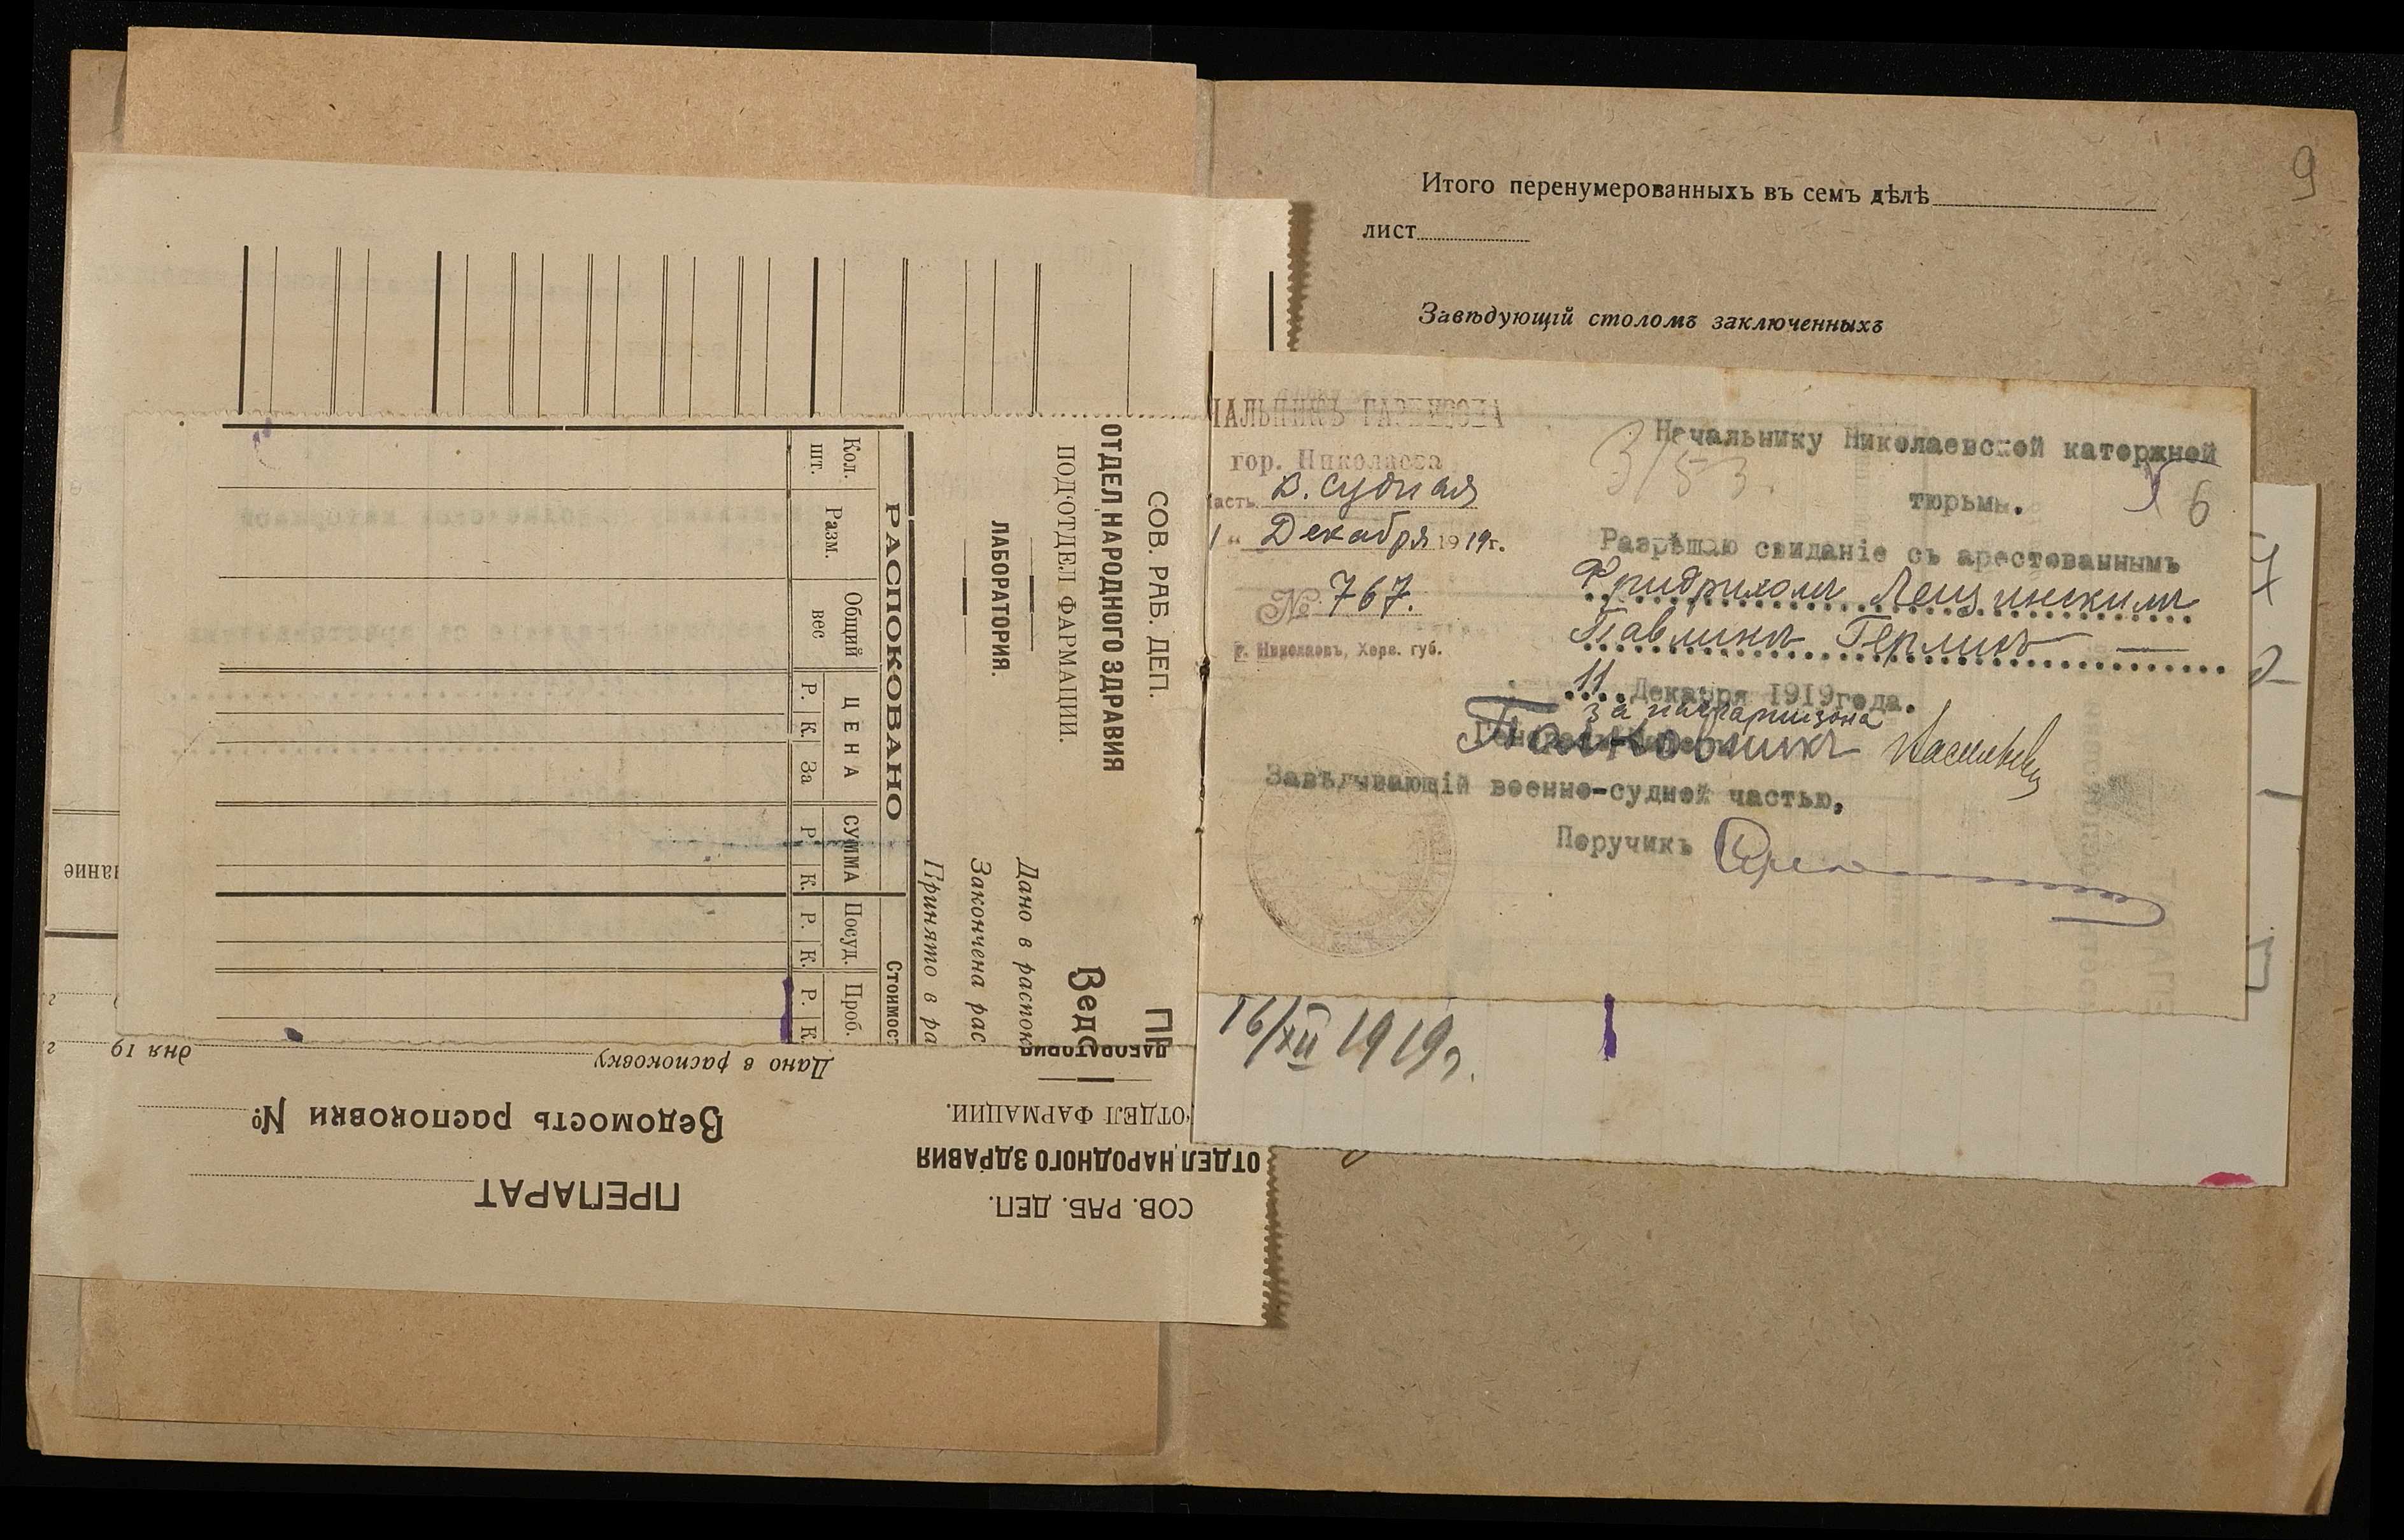 9
Итого перенумерованныхъ въ семъ дѣлѣ
лист
Завѣдующій столомъ заключенныхъ
ЧАЛЬНИКЪ ГАРНИЗОНА
гор. Николаева
часть В. судная
1 " Декабря 1919 г.
№ 767.
г. Николаевъ, Херс. губ.
3153.
Начальнику Николаевской каторжной
тюрьмы.
6
Разрѣшаю свиданіе съ арестованнымъ
Фридрихомъ Лещинскимъ
Павлинъ Герликъ
11 Декабря 1919 года.
за начгарнизона
Полковникъ
Завѣдывающій военно-судной частью,
Поручикъ
16/XII 1919 г.
СОВ. РАБ. ДЕП.
ОТДЕЛ НАРОДНОГО ЗДРАВИЯ
ПОД'ОТДЕЛ ФАРМАЦИИ.
ЛАБОРАТОРИЯ.
ПР
Ведо
Дано в распоко
Закончена рас
Принято в ра
РАСПОКОВАНО
Стоимост
Кол. шт.
Разм.
Общий вес
ЦЕНА
СУММА
Посуд.
Проб.
Р. К. За Р. К. Р. К. Р. К.
СОВ. РАБ. ДЕП.
ОТДЕЛ НАРОДНОГО ЗДРАВИЯ
ОТДЕЛ ФАРМАЦИИ.
ЛАБОРАТОРИЯ
ПРЕПАРАТ
Ведомость распоковки №
Дано в распоковку дня 19 г
г
ание